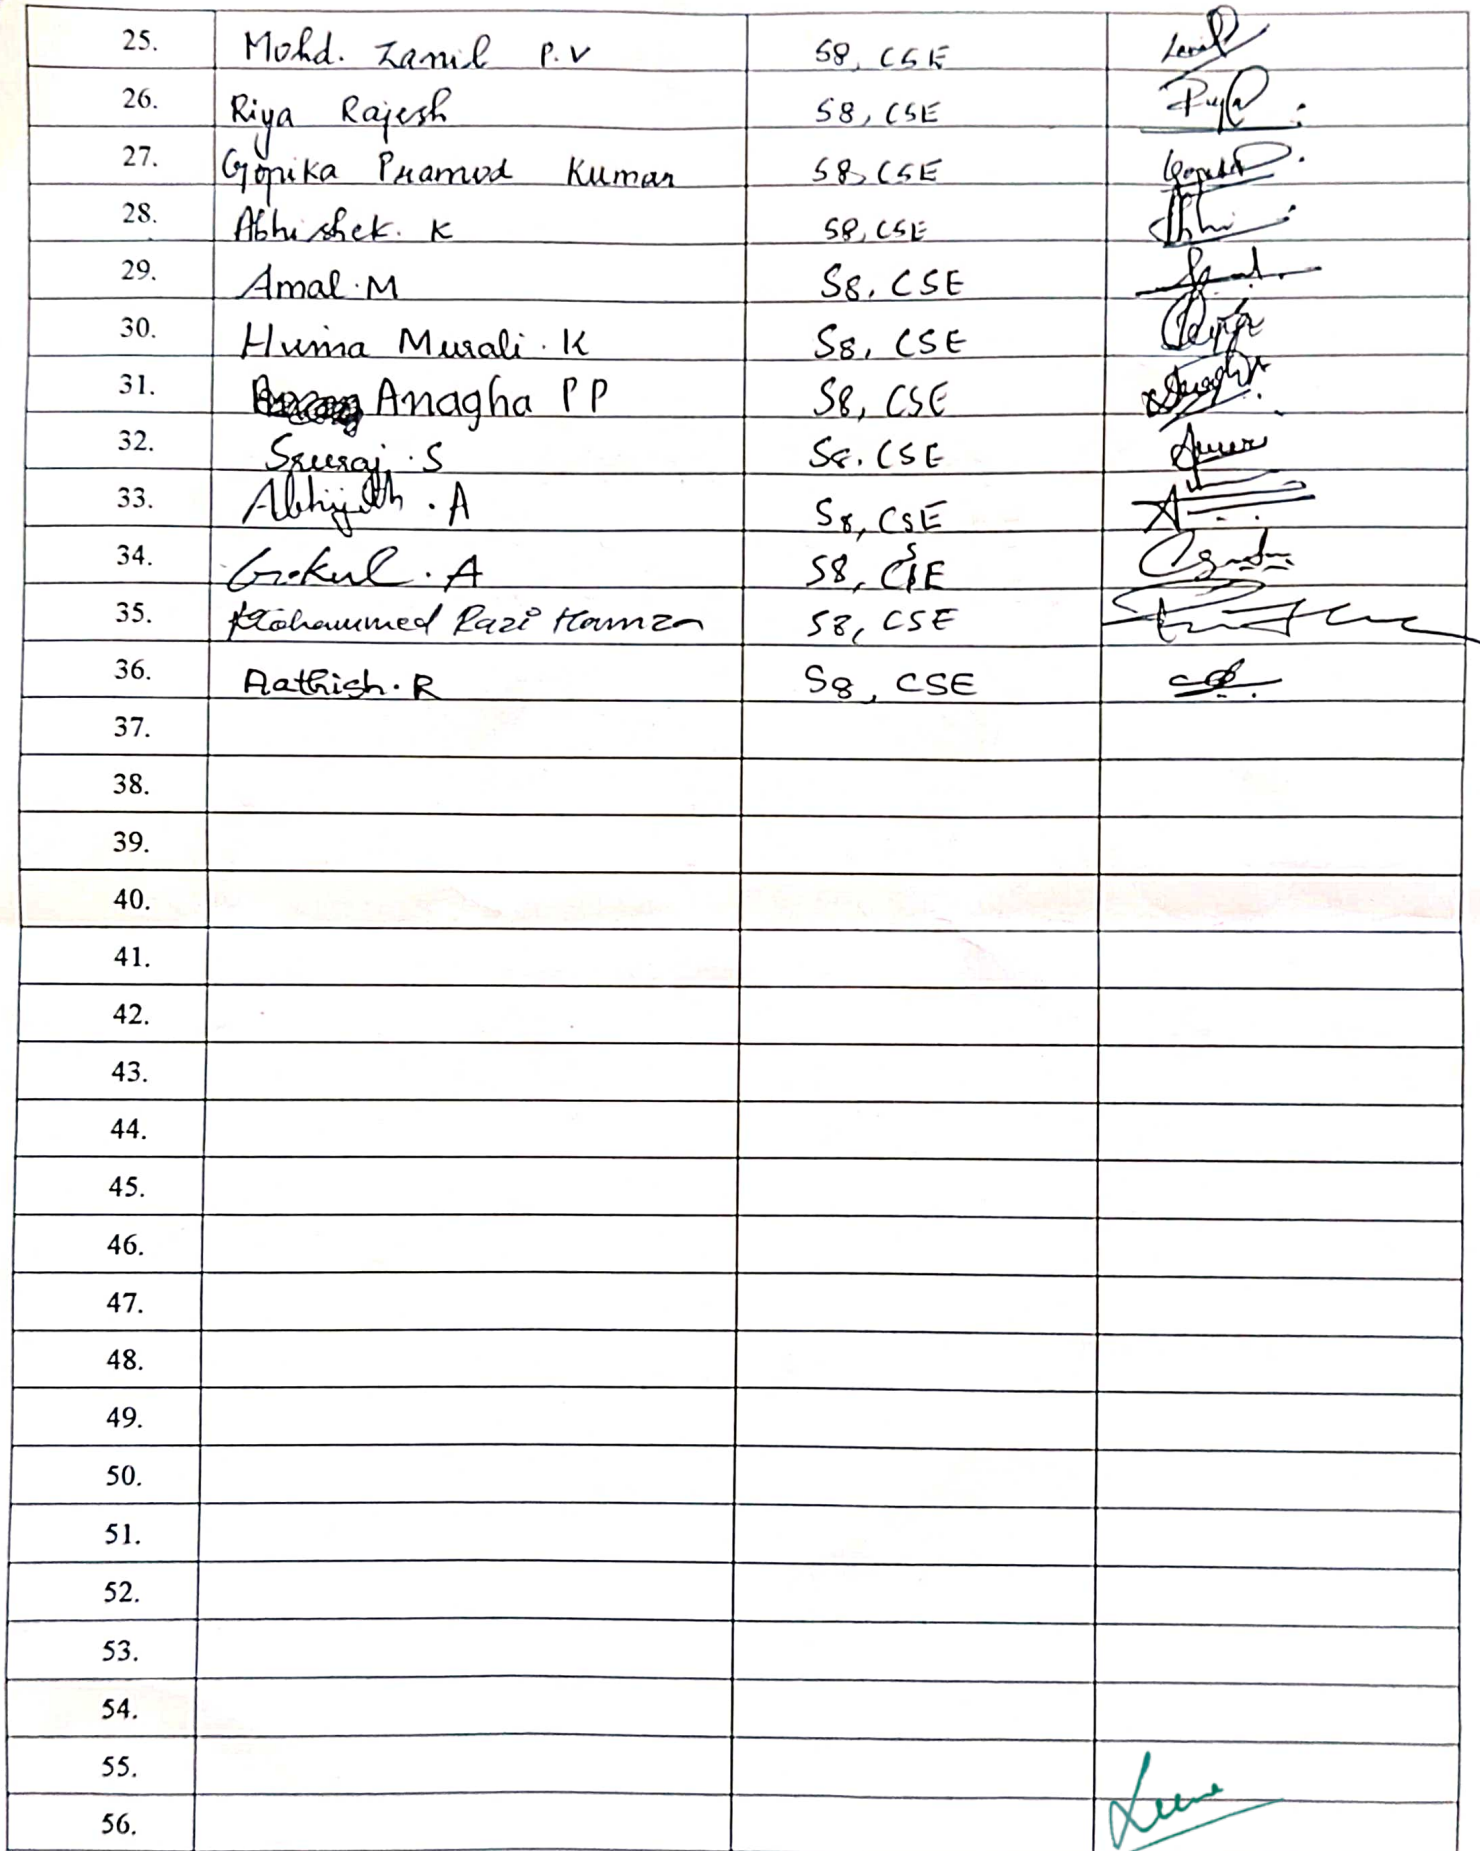 25. Mohd. Zamil P.V S8, CSE Zamil
26. Riya Rajesh S8, CSE Riya
27. Gopika Pramod Kumar S8, CSE
28. Abhishek. K S8, CSE Abhi
29. Amal. M S8, CSE
30. Huma Murali. K S8, CSE
31. Anagha P P S8, CSE
32. Sreeraj. S S8. CSE
33. Abhijith. A S8, CSE
34. Gokul. A S8, CSE
35. Mohammed Razi Hamza S8, CSE
36. Aathish. R S8, CSE
37.
38.
39.
40.
41.
42.
43.
44.
45.
46.
47.
48.
49.
50.
51.
52.
53.
54.
55.
56.